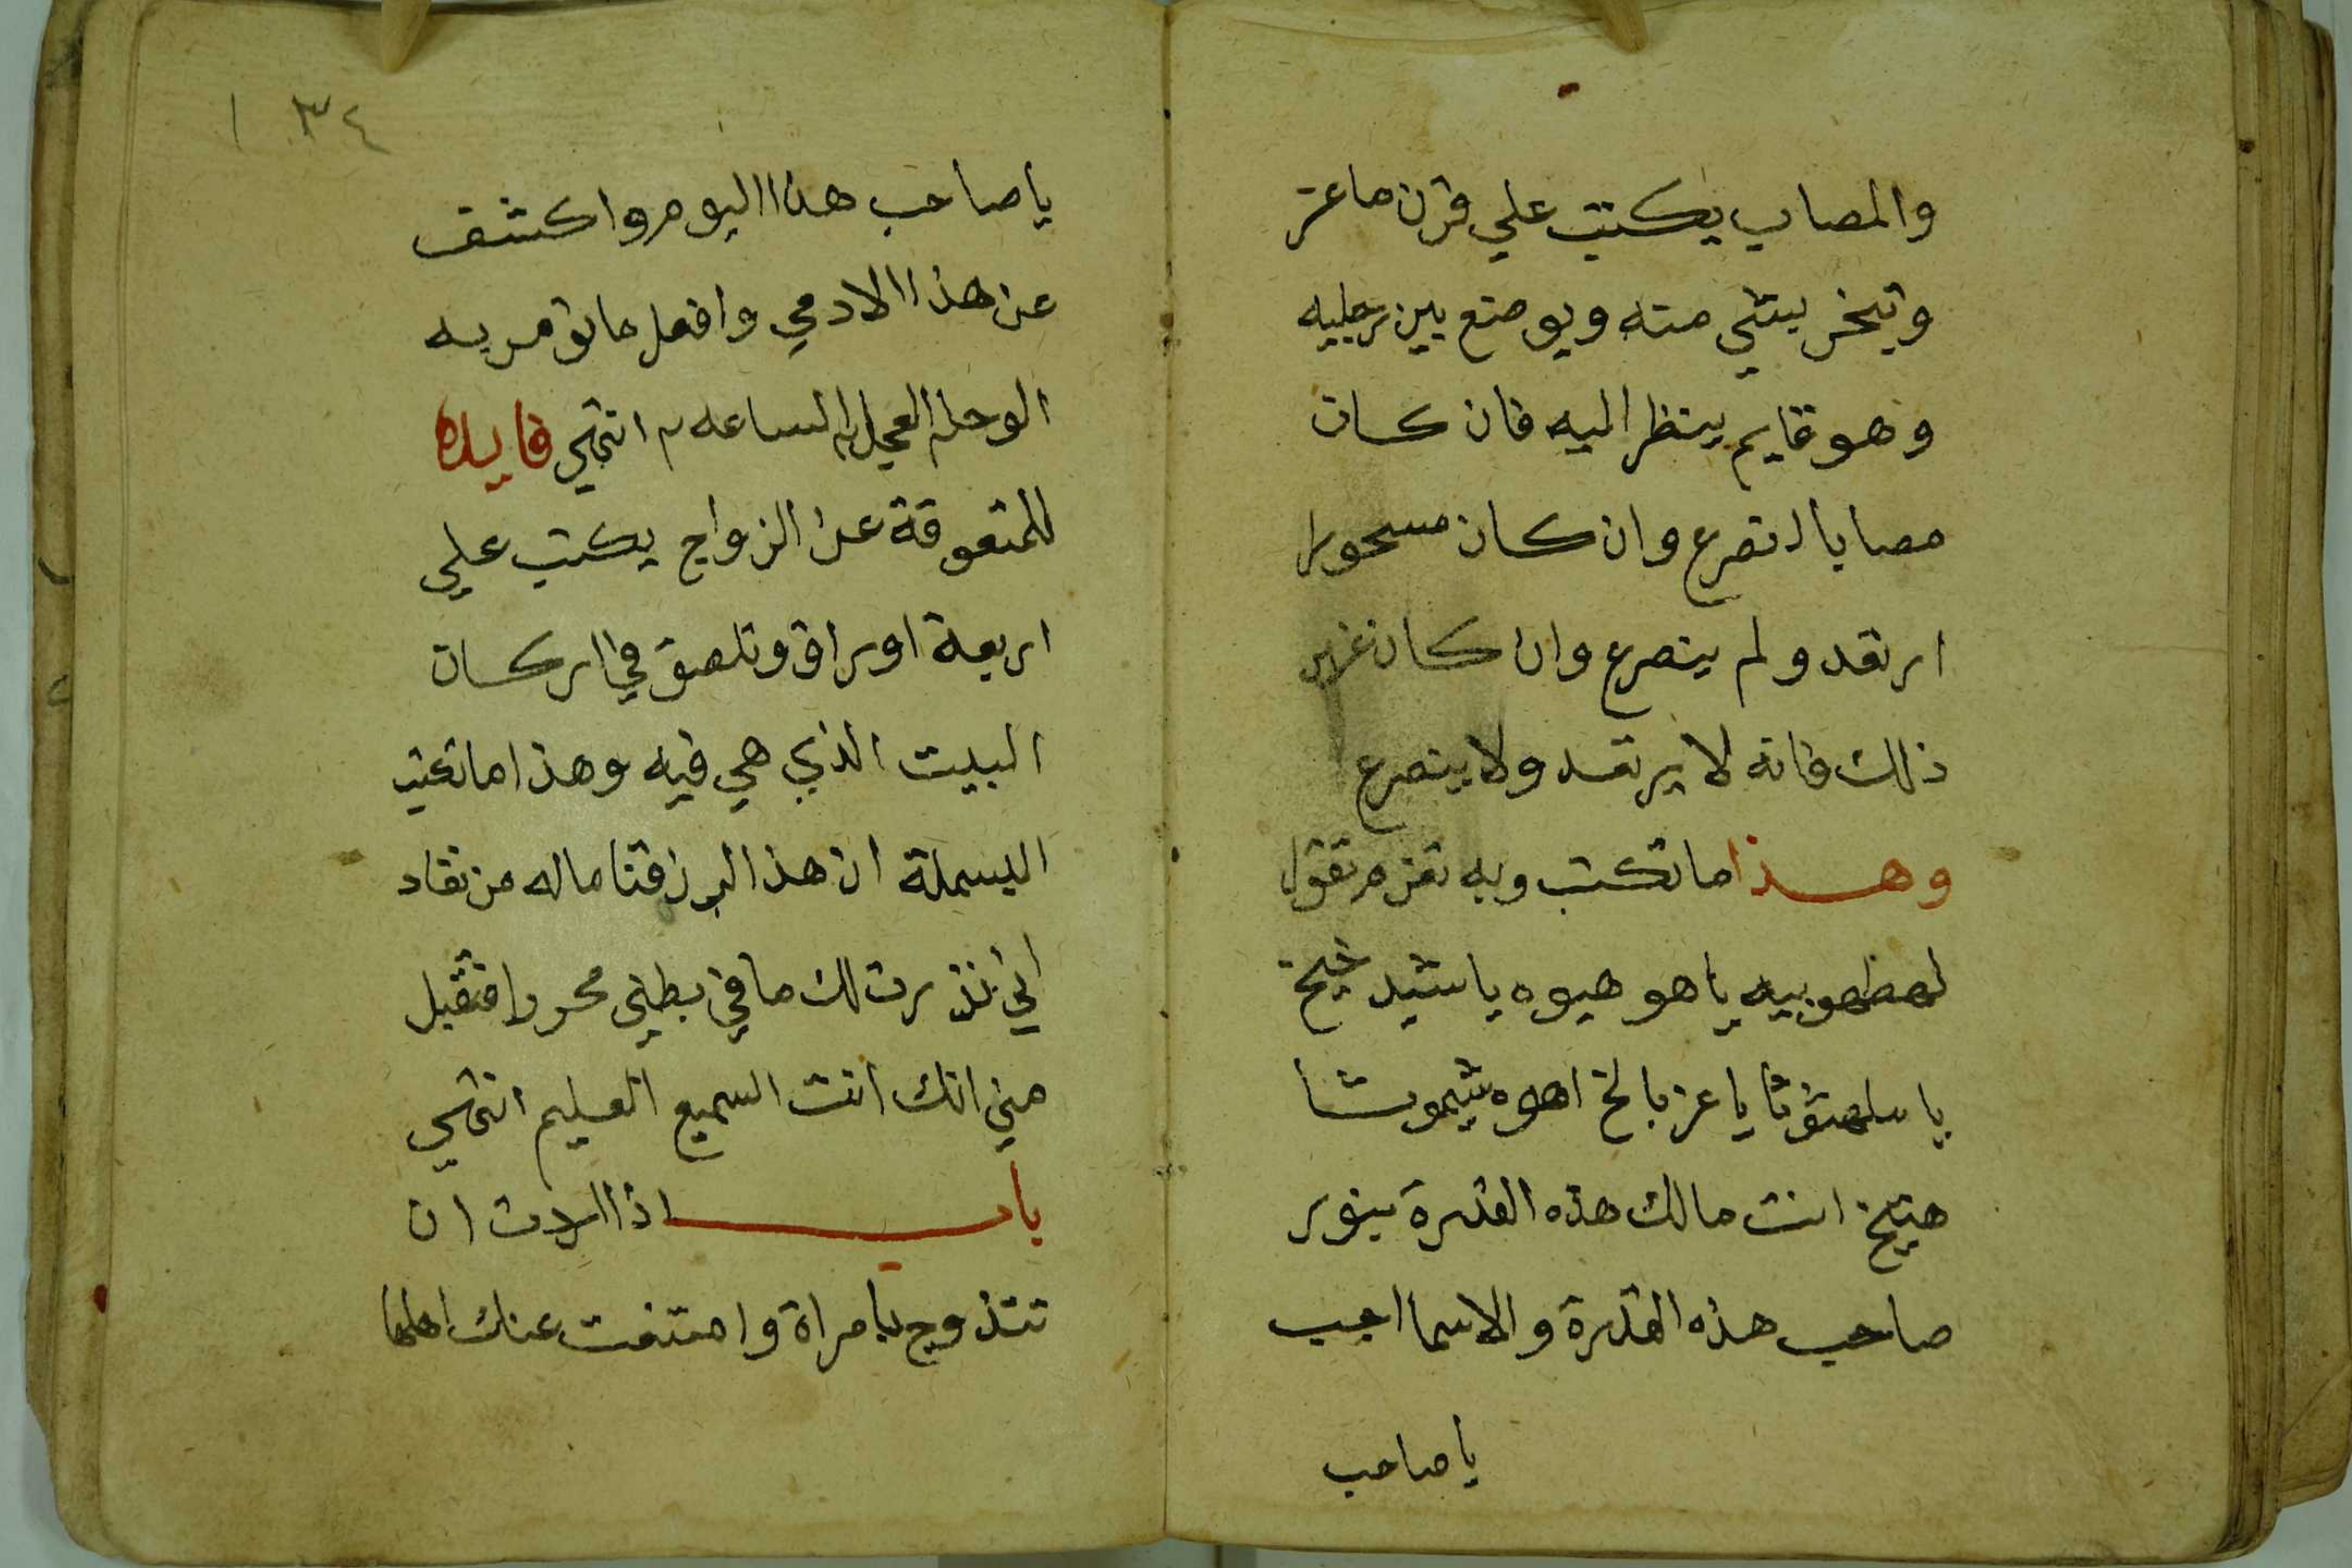 والمصاب يكتب علي قرن ماعز
ويبخر بشي منه ويوضع بين رجليه
وهو قايم ينظر اليه فان كان
مصابا انصرع وان كان مسحورا
ارتعد ولم ينصرع وان كان غير
ذلك فانه لا يرتعد ولا ينصرع
وهذا ما تكتب وبه تعزم تقول
لهطهوبيه ياهو هيوه ياشيد خيخ
يا سلهثوثا يا عز بالخ اهوه شيموشا
هيثخ انت مالك هذه القدرة بنور
صاحب هذه القدرة والاسما اجب
يا صاحب
١٣٤
يا صاحب هذا اليوم واكشف
عن هذا الادمي وافعل ما تومر به
الوحا٢ العجل٢ الساعه٢ انتهي فايده
للمتعوقة عن الزواج يكتب علي
اربعة اوراق وتلصق في اركان
البيت الذي هي فيه وهذا ما تكتب
البسملة ان هذا لرزقنا ماله من نفاد
اني نذرت لك ما في بطني محررا فتقبل
مني انك انت السميع العليم انتهي
باب اذا اردت ان
تتذوج بامراة وامتنعت عنك اهلها